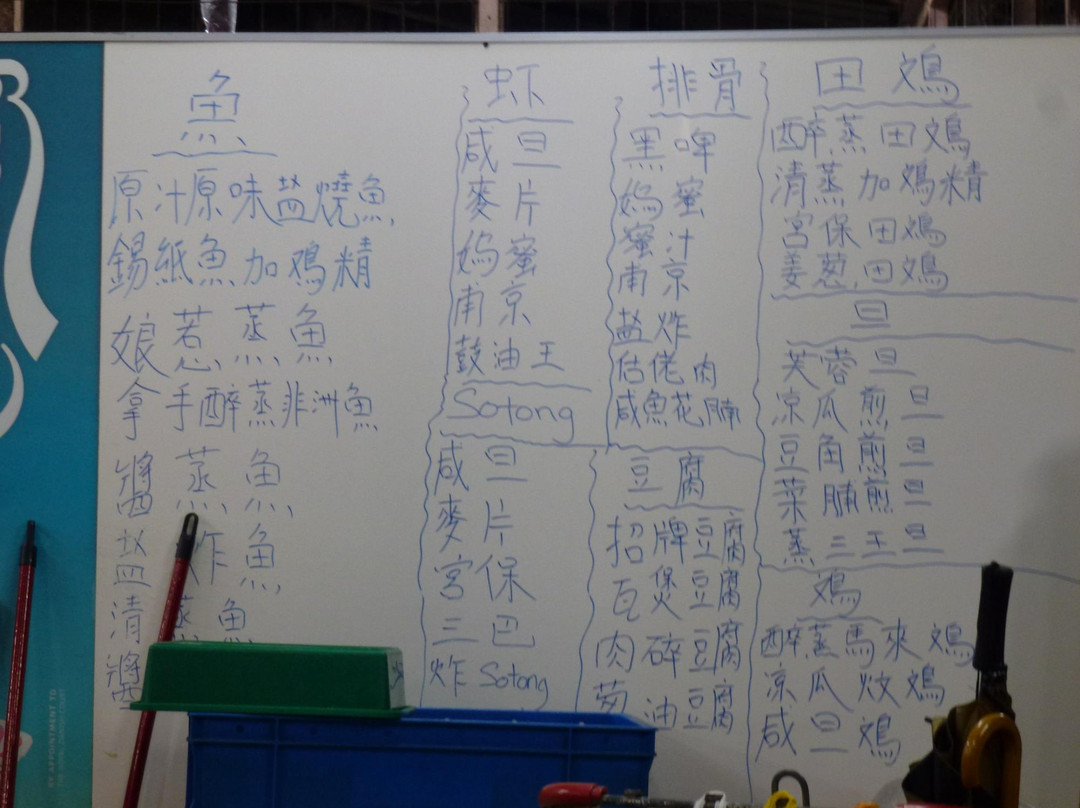 魚
原汁原味盐燒魚
錫紙魚加鳮精
娘惹蒸魚
拿手醉蒸非洲魚
醬蒸魚
盐炸魚
清蒸魚
醬
虾
咸旦
麥片
妈蜜
南京
鼓油王
Sotong
咸旦
麥片
宮保
三巴
炸Sotong
排骨
黑啤
妈蜜
蜜汁
南京
盐炸
估佬肉
咸魚花腩
豆腐
招牌豆腐
瓦煲豆腐
肉碎豆腐
油豆腐
田鳮
醉蒸田鳮
清蒸加鳮精
宮保田鳮
姜葱田鳮
旦
芙蓉旦
凉瓜煎旦
豆角煎旦
菜脯煎旦
蒸三王旦
鳮
醉蒸馬來鳮
凉瓜炆鳮
咸旦鳮
BY APPOINTMENT TO